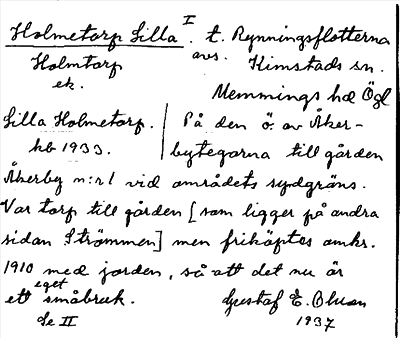 Holmetorp Lilla I. t. Rynningsflotterna
Holmtorp avs. Kimstads sn.
ek. Memmings hd Ögl
Lilla Holmetorp. På den ö. av Åker-
hb 1933. bytegorna till gården
Åkerby n:r 1 vid området's sydgräns.
Var torp till gården [som ligger på andra
sidan Strömmen] men friköptes omkr.
1910 med jorden, så att det nu är
ett eget småbruk. Gustaf E. Olson
Se II 1937